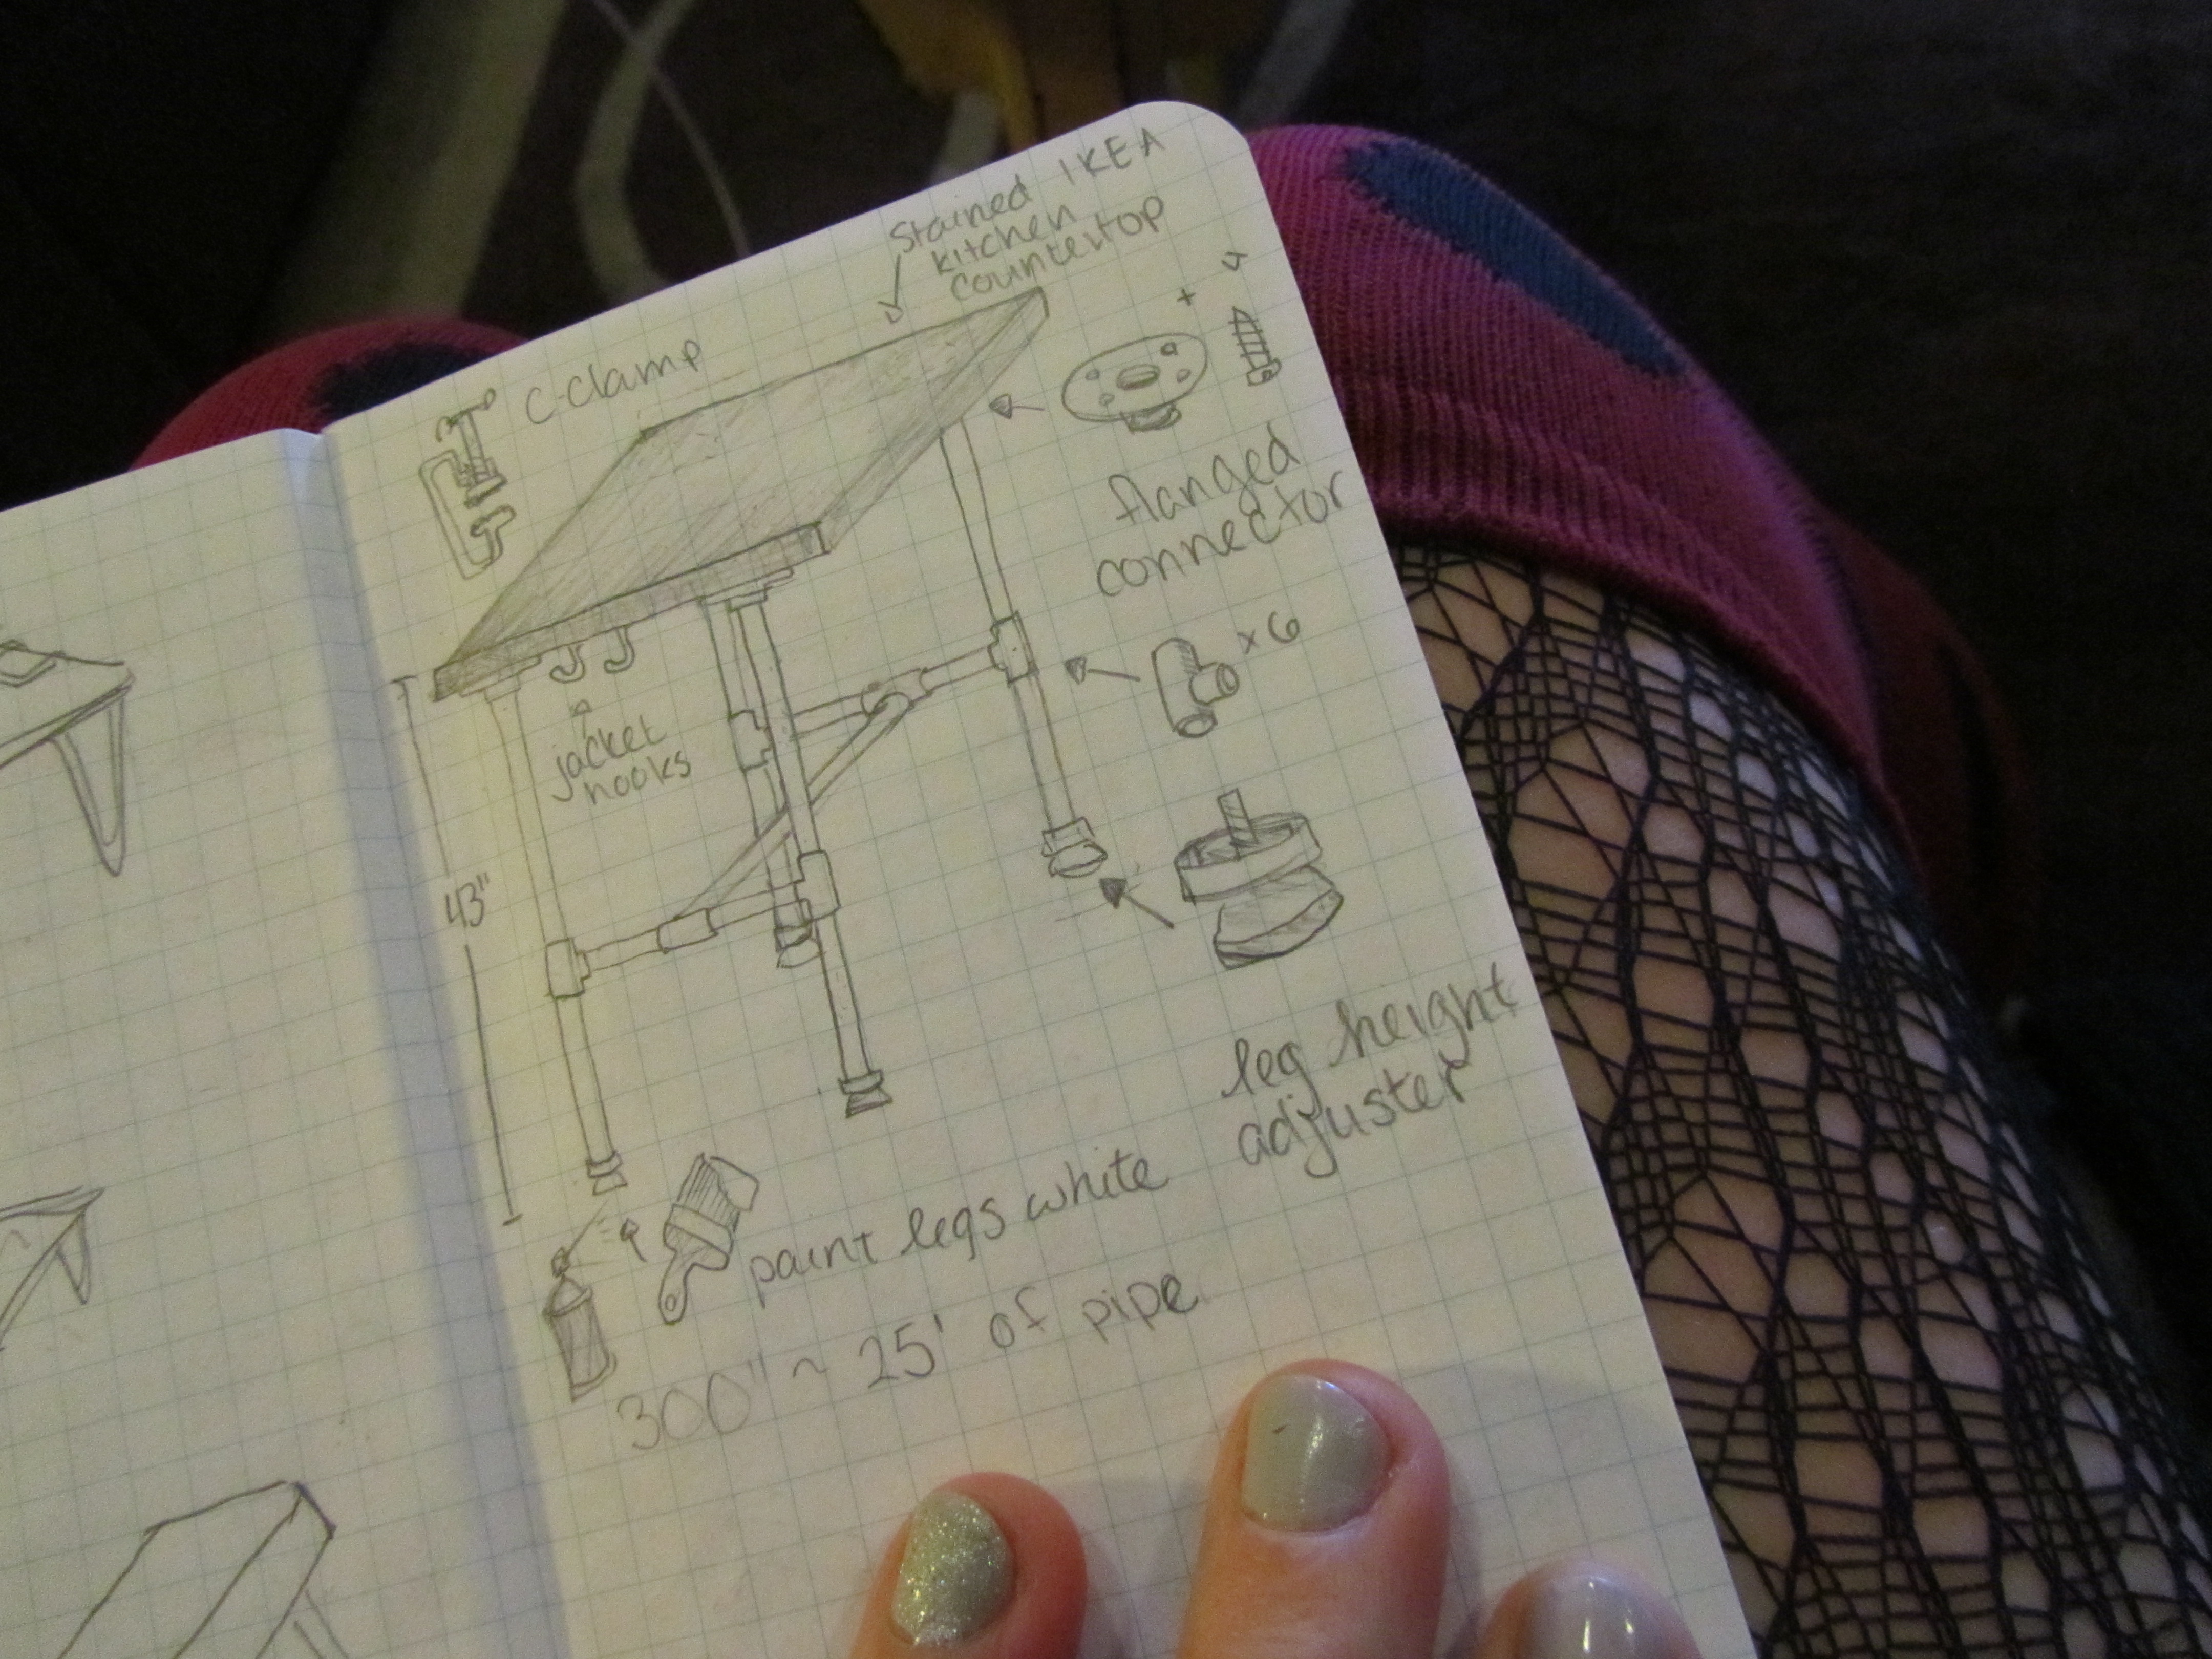 Stained IKEA
kitchen
countertop
C-clamp
+
4
flanged
connector
x 6
jacket
hooks
43"
leg height
adjuster
paint legs white
300" ~ 25' of pipe